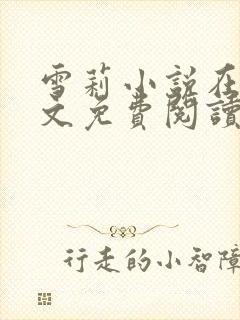 雪莉小説在
文免費閱讀
行走的小智障